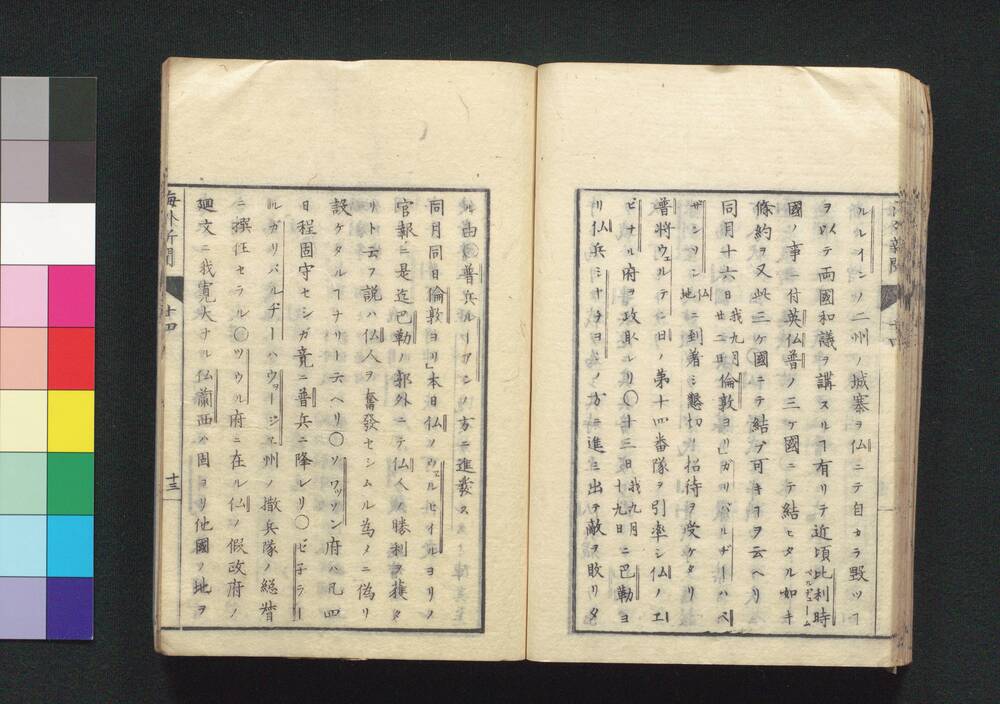 ルルインノ二州ノ城塞ヲ仏ニテ自カラ毀ツヿ
ヲ以テ両國和議ヲ講スルヿ有リテ近頃比利時ベルヂューム
國ノ事ニ付英仏普ノ三ケ國ニテ結ヒタル如キ
條約ヲ又此三ケ國ニテ結ブ可キヿヲ云ヘリ
同月十六日我九月廿二日倫敦ヨリ」ガリバルヂーハベ
ザンソン仏地ニ到着シ懇切ノ招待ヲ受ケタリ
普將ウェルテハ日ノ第十四番隊ヲ引率シ仏ノエ
ピナル府ヲ攻取レリ〇十三日我九月十九日ニ巴勒ヨ
リ仏兵ミトヲヨンノ方ニ進ミ出テ敵ヲ敗リタ
ル由〇普兵ルーアンノ方ニ進發ス
同月同日倫敦ヨリ」本日仏ノウェルセイルヨリノ
官報ニ是迄巴勒ノ郭外ニテ仏人ノ勝利ヲ獲タ
リト云フ説ハ仏人ヲ奮發セシムル為メニ偽リ
設ケタルヿナリート云ヘリ〇ソワッソン府ハ凡四
日程固守セシガ竟ニ普兵ニ降レリ〇
ルガリバルヂーハウヲージュ州ノ撒兵隊ノ総督
ニ撰任セラル〇ツウル府ニ在ル仏ノ假政府ノ
廻文ニ我寛大ナル仏蘭西ハ固ヨリ他國ノ地ヲ
海外新聞
十四
十三